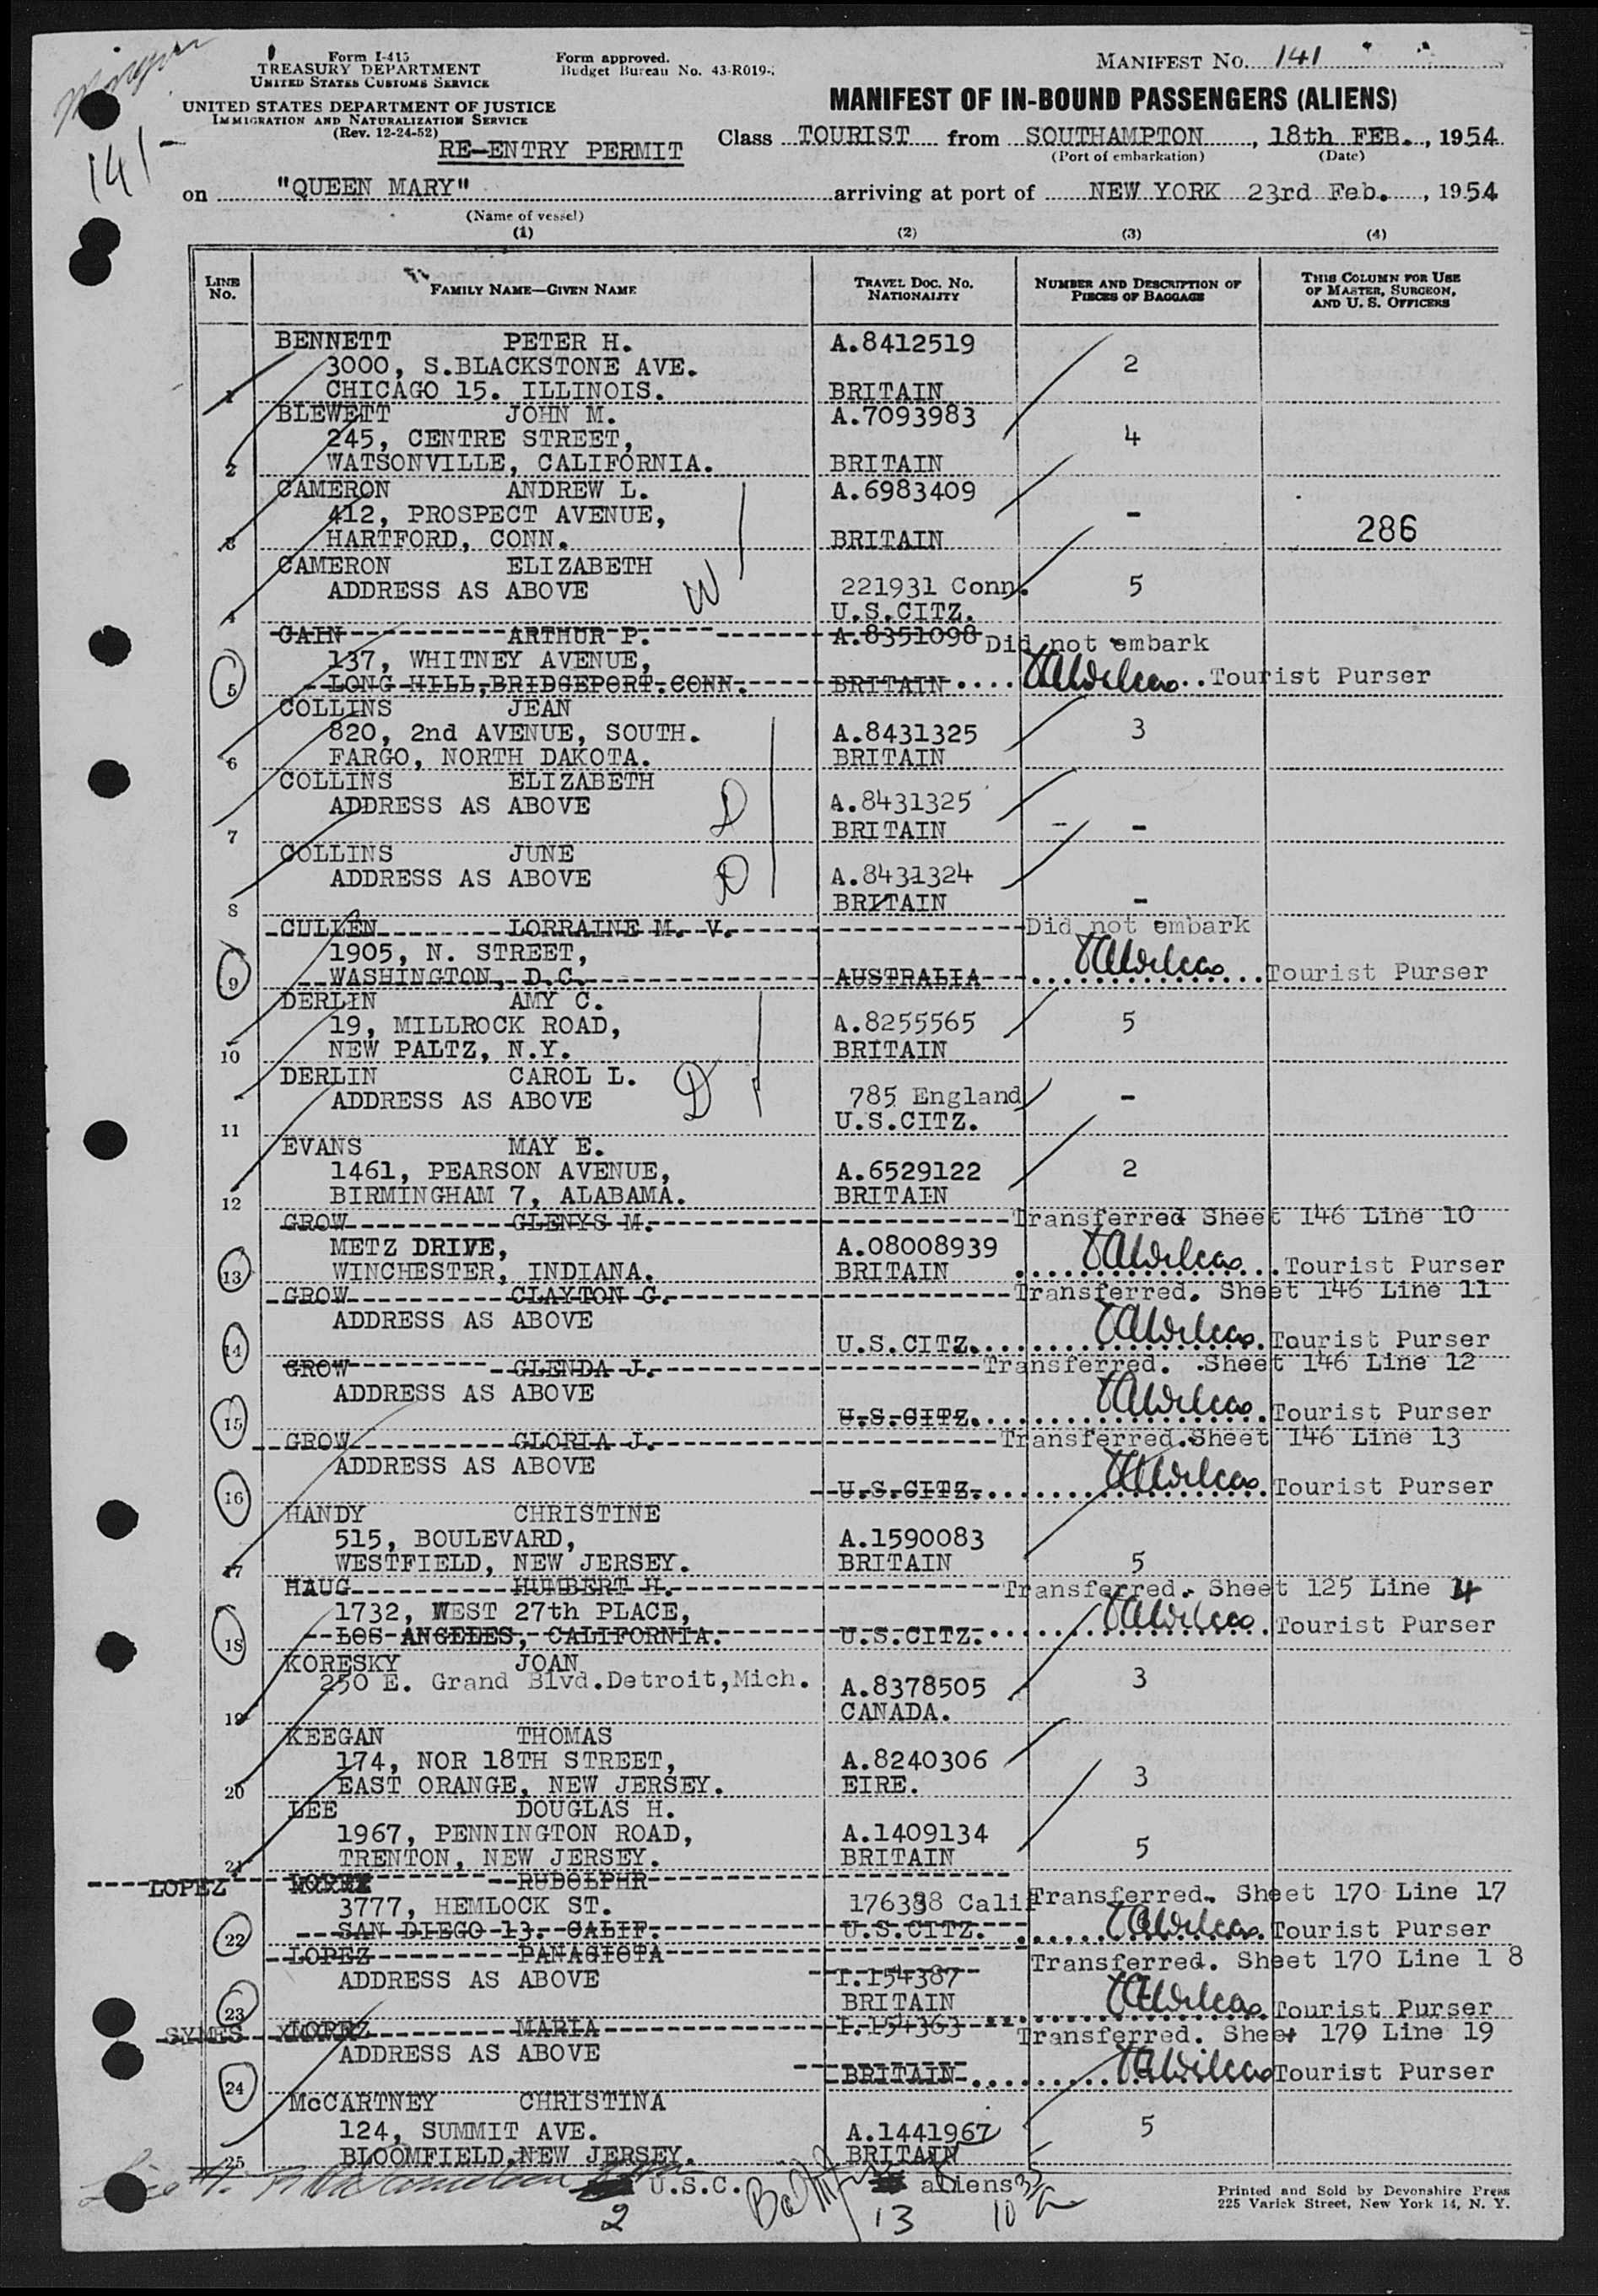 141-
Form I-415
TREASURY DEPARTMENT
UNITED STATES CUSTOMS SERVICE
UNITED STATES DEPARTMENT OF JUSTICE
IMMIGRATION AND NATURALIZATION SERVICE
(Rev. 12-24-52)
Form approved.
Budget Bureau No. 43-R019-
MANIFEST No. 141
MANIFEST OF IN-BOUND PASSENGERS (ALIENS)
RE-ENTRY PERMIT
Class TOURIST from SOUTHAMPTON, 18th FEB., 1954
(Port of embarkation) (Date)
on "QUEEN MARY" arriving at port of NEW YORK 23rd Feb., 1954
(Name of vessel)
(1) (2) (3) (4)
LINE No. FAMILY NAME—GIVEN NAME TRAVEL DOC. No. NATIONALITY NUMBER AND DESCRIPTION OF PIECES OF BAGGAGE THIS COLUMN FOR USE OF MASTER, SURGEON, AND U. S. OFFICERS
BENNETT PETER H. A.8412519
3000, S.BLACKSTONE AVE. 2
1 CHICAGO 15. ILLINOIS. BRITAIN
BLEWETT JOHN M. A.7093983
245, CENTRE STREET, 4
2 WATSONVILLE, CALIFORNIA. BRITAIN
CAMERON ANDREW L. A.6983409
412, PROSPECT AVENUE, -
3 HARTFORD, CONN. BRITAIN 286
CAMERON ELIZABETH
ADDRESS AS ABOVE W 221931 Conn. 5
4 U.S.CITZ.
CAIN ARTHUR P. A.8351098 Did not embark
137, WHITNEY AVENUE,
5 LONG HILL,BRIDGEPORT.CONN. BRITAIN Tourist Purser
COLLINS JEAN
820, 2nd AVENUE, SOUTH. A.8431325 3
6 FARGO, NORTH DAKOTA. BRITAIN
COLLINS ELIZABETH
ADDRESS AS ABOVE D A.8431325
7 BRITAIN - -
COLLINS JUNE
ADDRESS AS ABOVE D A.8431324
8 BRITAIN -
CULLEN LORRAINE M. V. Did not embark
1905, N. STREET,
9 WASHINGTON, D.C. AUSTRALIA Tourist Purser
DERLIN AMY C.
19, MILLROCK ROAD, A.8255565 5
10 NEW PALTZ, N.Y. BRITAIN
DERLIN CAROL L.
ADDRESS AS ABOVE D 785 England -
11 U.S.CITZ.
EVANS MAY E.
1461, PEARSON AVENUE, A.6529122 2
12 BIRMINGHAM 7, ALABAMA. BRITAIN
GROW GLENYS M. Transferred Sheet 146 Line 10
METZ DRIVE, A.08008939
13 WINCHESTER, INDIANA. BRITAIN Tourist Purser
GROW CLAYTON C. Transferred. Sheet 146 Line 11
ADDRESS AS ABOVE
14 U.S.CITZ. Tourist Purser
GROW GLENDA J. Transferred. Sheet 146 Line 12
ADDRESS AS ABOVE
15 U.S.CITZ. Tourist Purser
GROW GLORIA J. Transferred.Sheet 146 Line 13
ADDRESS AS ABOVE
16 U.S.CITZ. Tourist Purser
HANDY CHRISTINE
515, BOULEVARD, A.1590083
17 WESTFIELD, NEW JERSEY. BRITAIN 5
HAUG HUMBERT H. Transferred. Sheet 125 Line 4
1732, WEST 27th PLACE,
18 LOS ANGELES, CALIFORNIA. U.S.CITZ. Tourist Purser
KORESKY JOAN
250 E. Grand Blvd.Detroit,Mich. A.8378505 3
19 CANADA.
KEEGAN THOMAS
174, NOR 18TH STREET, A.8240306
20 EAST ORANGE, NEW JERSEY. EIRE. 3
LEE DOUGLAS H.
1967, PENNINGTON ROAD, A.1409134
21 TRENTON, NEW JERSEY. BRITAIN 5
LOPEZ RUDOLPHR
3777, HEMLOCK ST. 176338 Calif Transferred. Sheet 170 Line 17
22 SAN DIEGO 13. CALIF. U.S.CITZ. Tourist Purser
LOPEZ PANAGIOTA Transferred. Sheet 170 Line 1 8
ADDRESS AS ABOVE I.154387
23 BRITAIN Tourist Purser
SYMES MARIA I.154363 Transferred. Sheet 170 Line 19
ADDRESS AS ABOVE
24 BRITAIN Tourist Purser
McCARTNEY CHRISTINA
124, SUMMIT AVE. A.1441967 5
25 BLOOMFIELD,NEW JERSEY. BRITAIN
U.S.C. aliens
2 13 10
Printed and Sold by Devonshire Press
225 Varick Street, New York 14, N. Y.